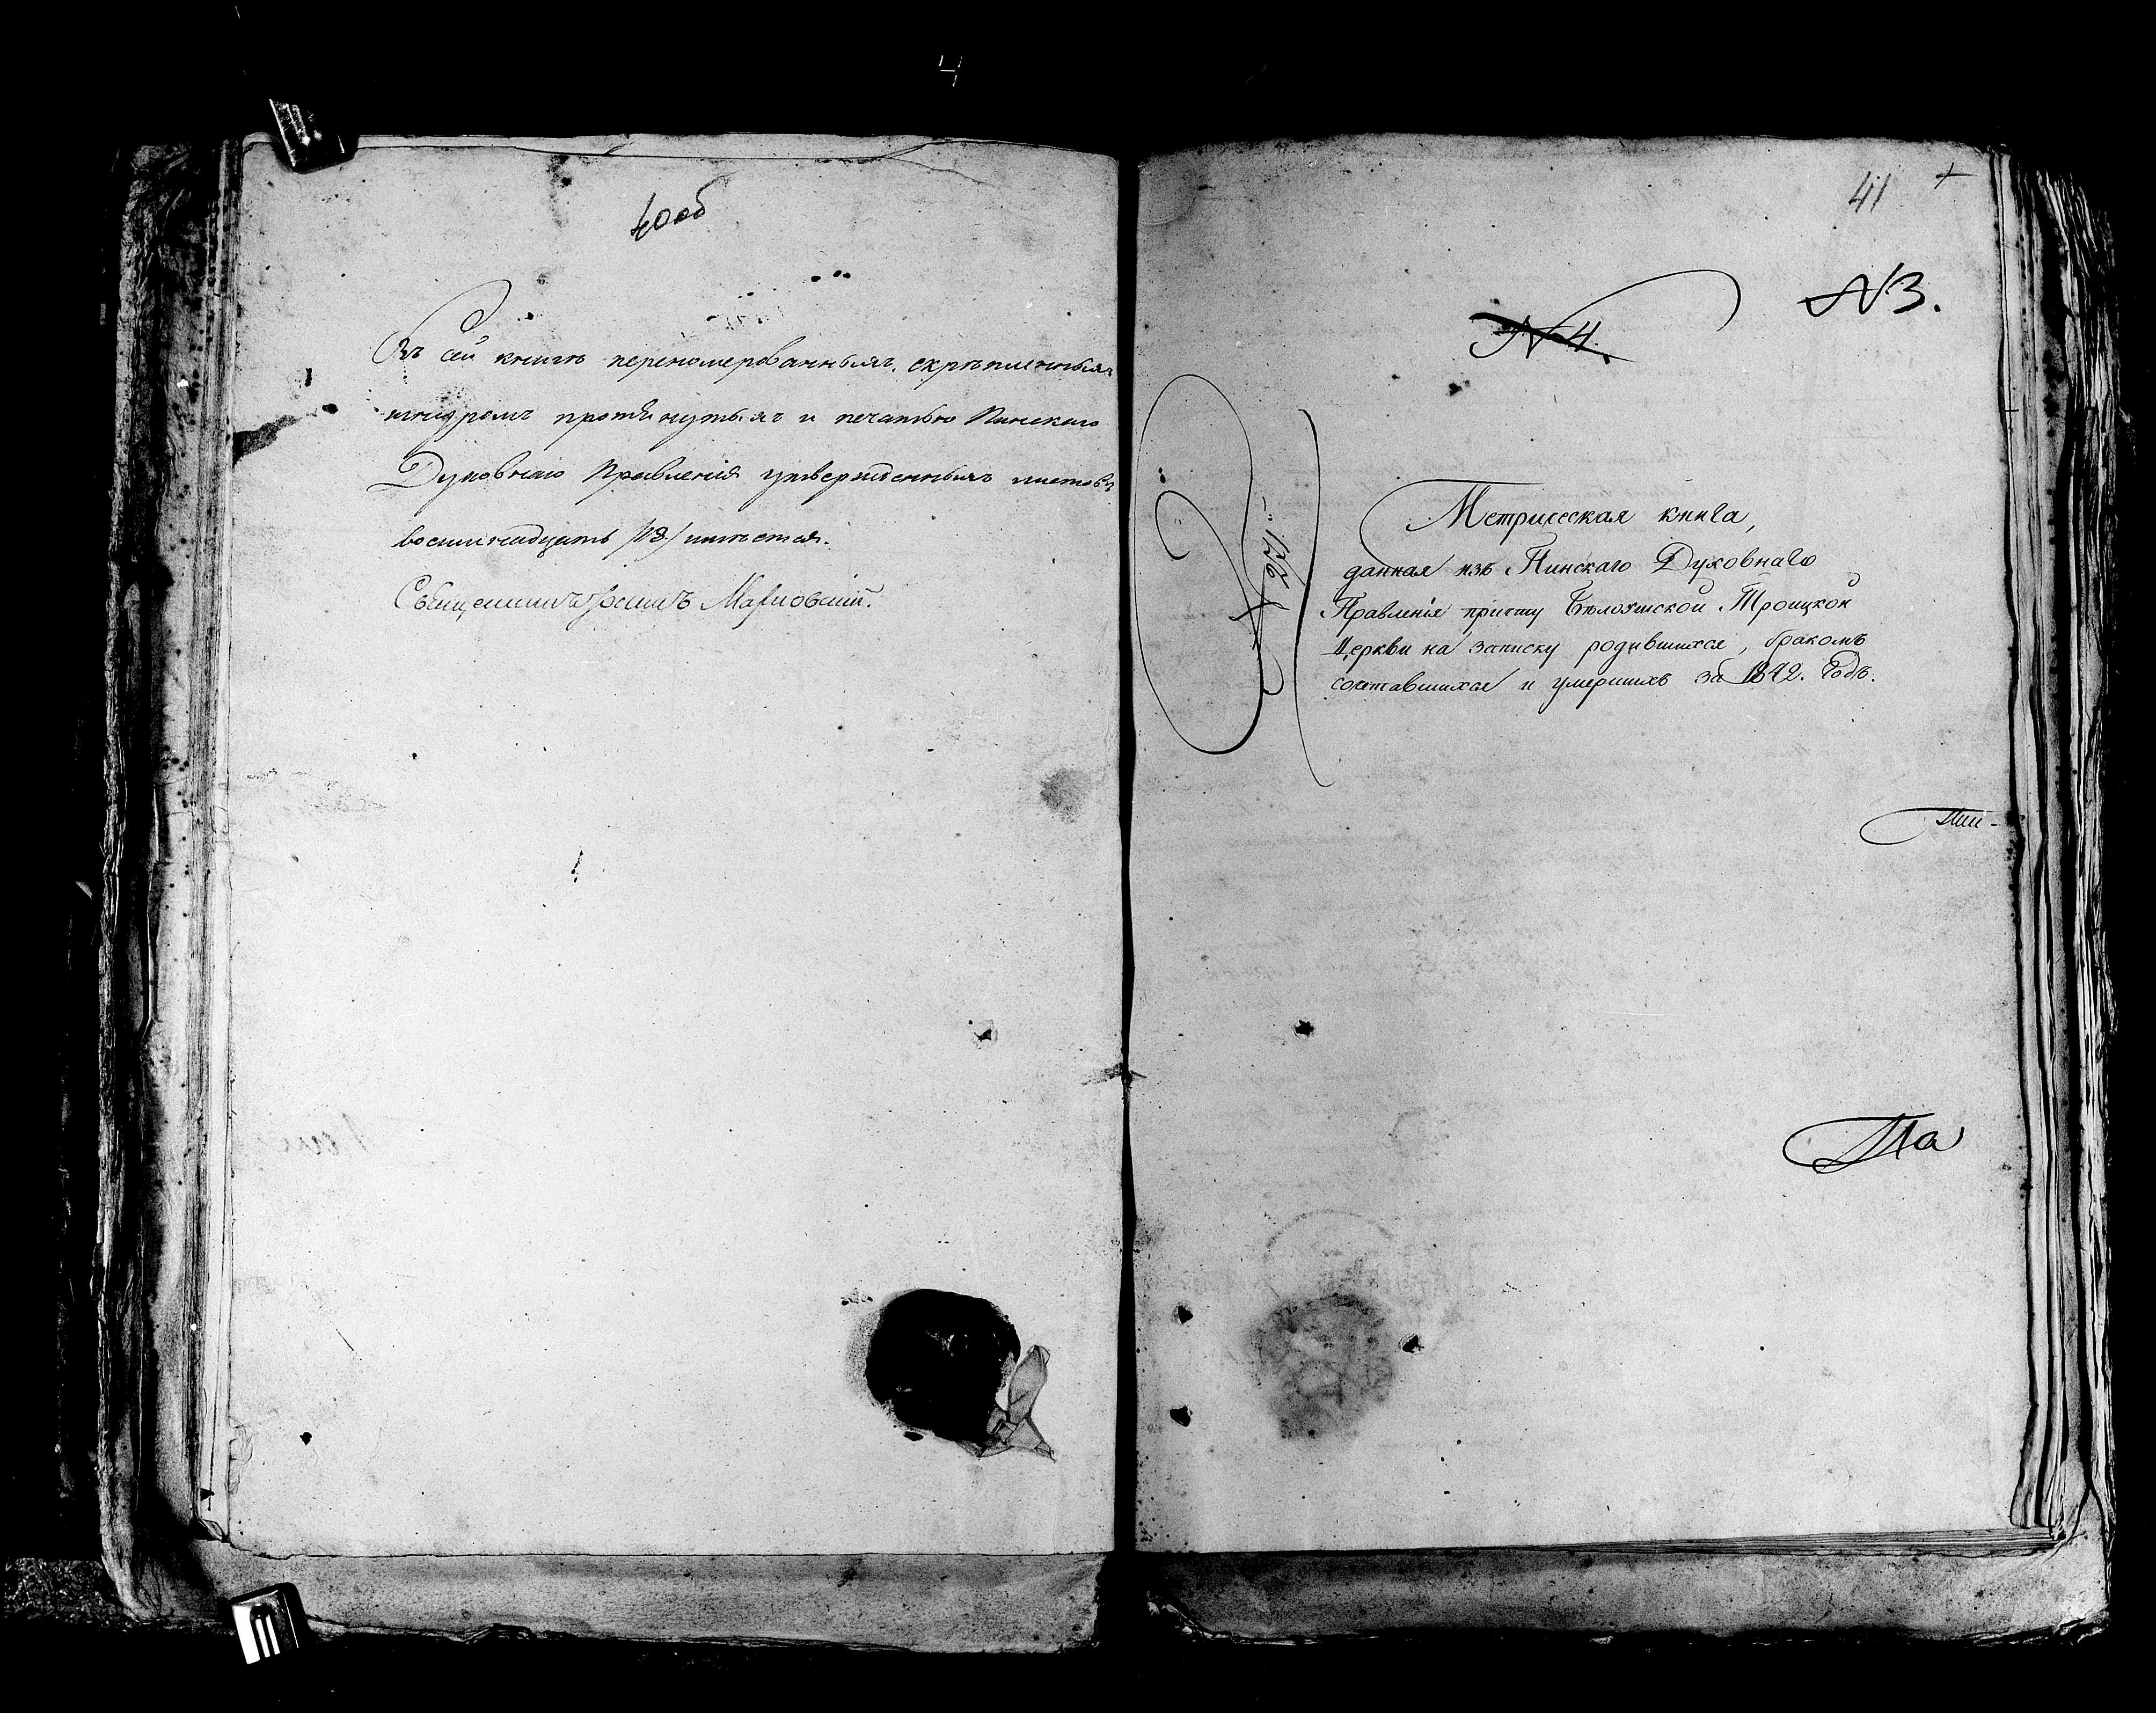 4
40об
Въ сей книгѣ перенумерованныхъ, скрѣпленныхъ
шнуромъ протянутыхъ и печатью Пинскаго
Духовнаго Правленія утвержденныхъ листовъ
восемнадцать /18/ имѣется.
Священникъ Марковскій.
41
N3.
N4.
Метрическая книга,
данная изъ Пинскаго Духовнаго
Правленія причту Бѣлоушской Троицкой
Церкви на записку родившихся, бракомъ
сочетавшихся и умершихъ за 1842. Годъ.
Пин-